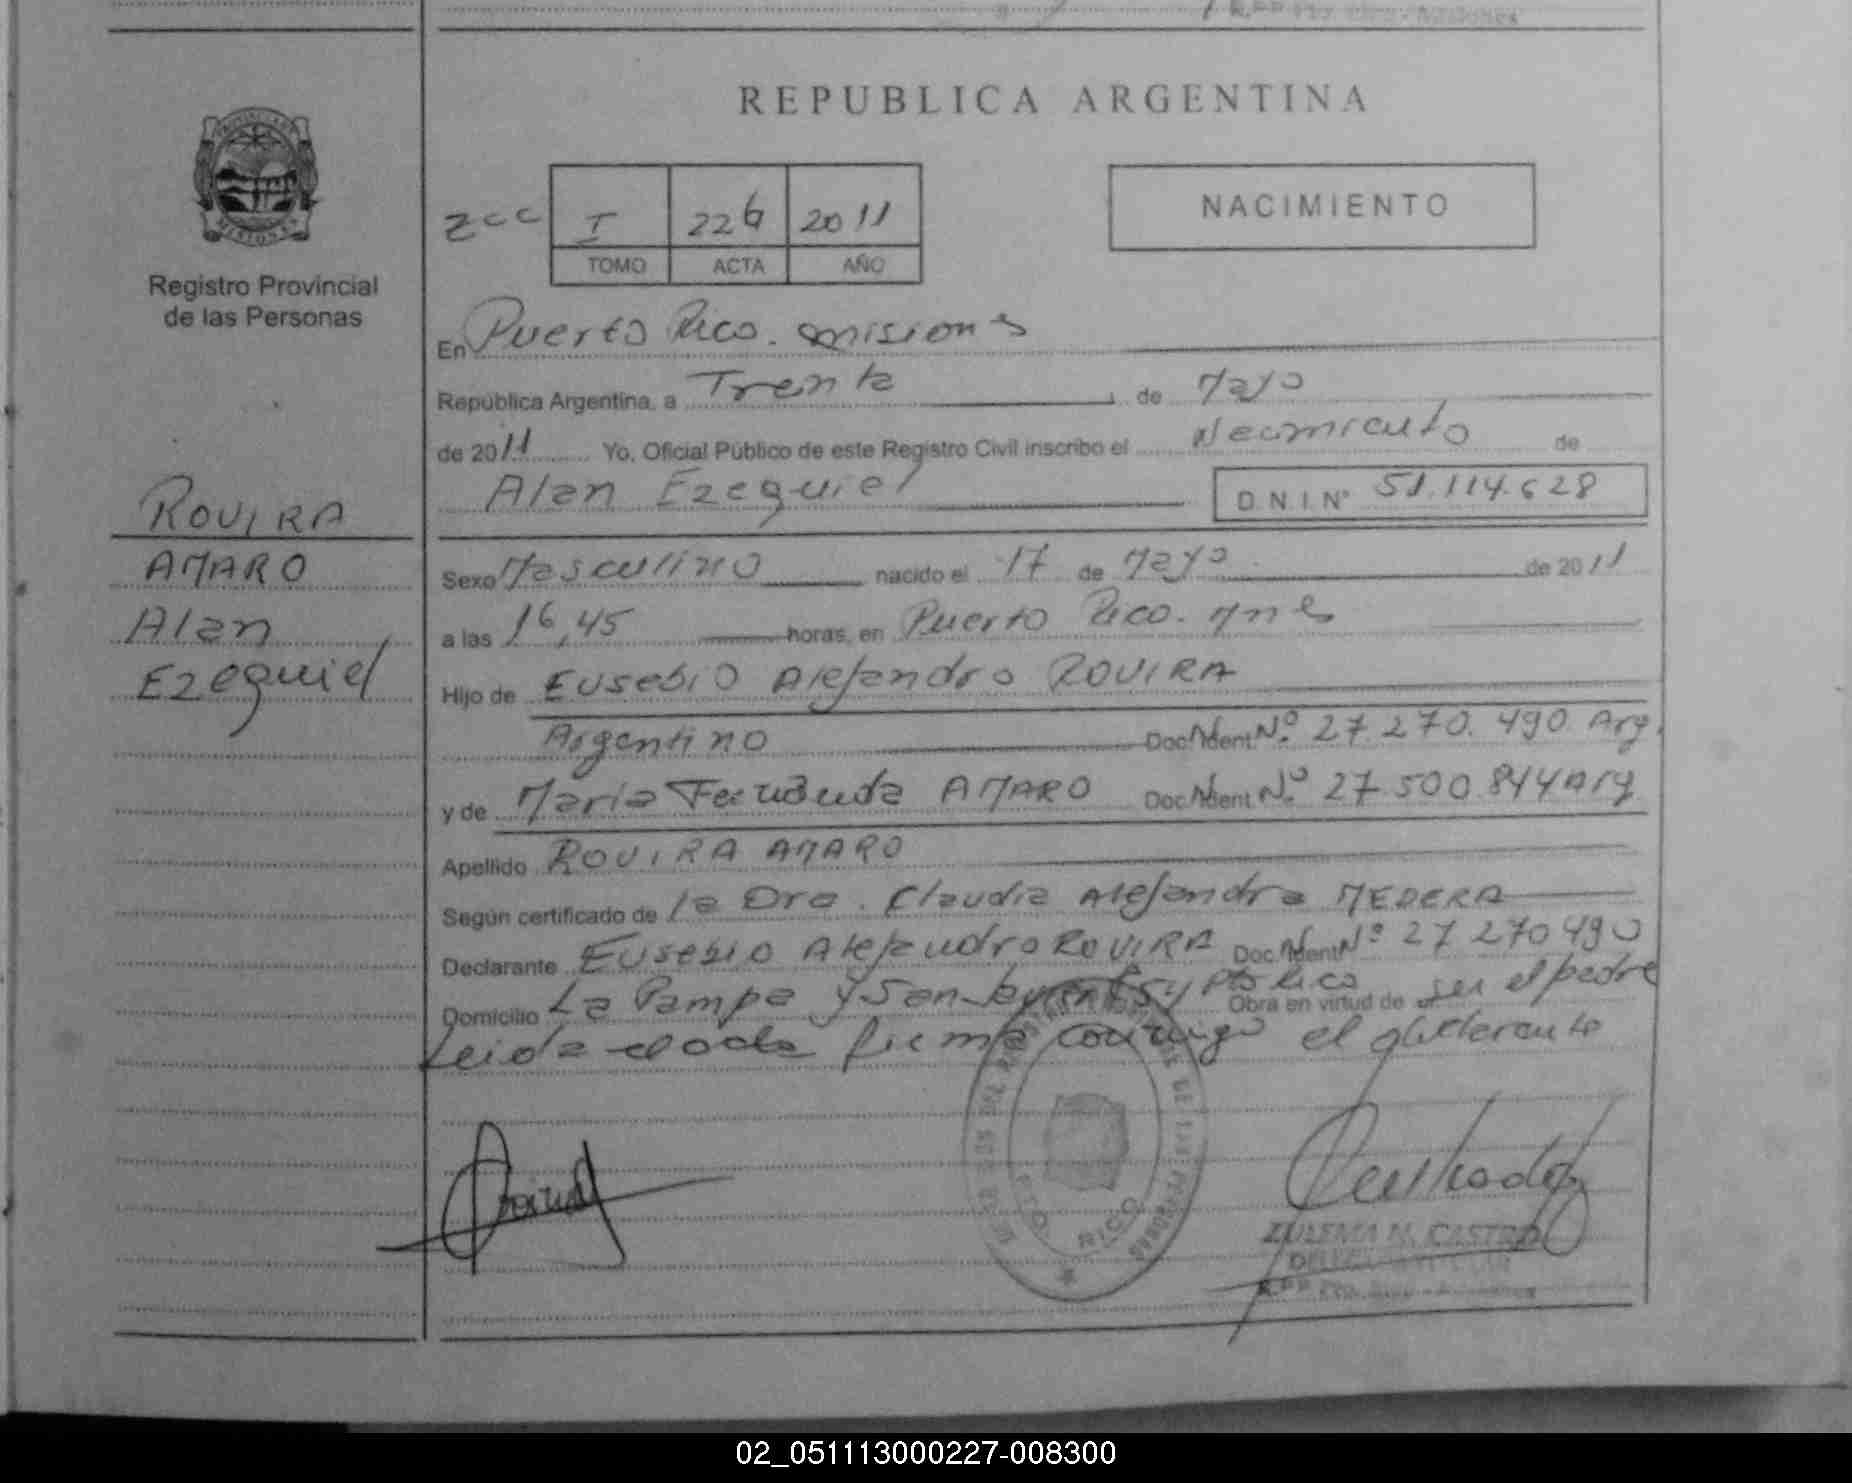 REPUBLICA ARGENTINA
PROVINCIA DE
MISIONES
Registro Provincial
de las Personas
zcc I 226 2011
TOMO ACTA AÑO
NACIMIENTO
En Puerto Rico. misiones
República Argentina, a Trenta de Mayo
de 2011 Yo, Oficial Público de este Registro Civil inscribo el Nacimiento de
Alan Ezequiel D.N.I. Nº 51.114.628
ROVIRA
AMARO
Alan
Ezequiel
Sexo Masculino nacido el 17 de Mayo de 2011
a las 16,45 horas, en Puerto Rico. Mnes
Hijo de Eusebio Alejandro ROVIRA
Argentino Doc. Ident. Nº 27.270.490. Arg.
y de Maria Fernanda AMARO Doc. Ident. Nº 27.500.844 Arg
Apellido ROVIRA AMARO
Según certificado de la Dra. Claudia Alejandra MEDERA
Declarante Eusebio Alejandro ROVIRA Doc. Ident. Nº 27 270 490
Domicilio La Pampa y San Pto Rico Obra en virtud de ser el padre
Leida el acta firma conmigo el
PTO. RICO
ZULEMA N. CASTRO
R.P.P. Pto. Rico - Misiones
02_051113000227-008300